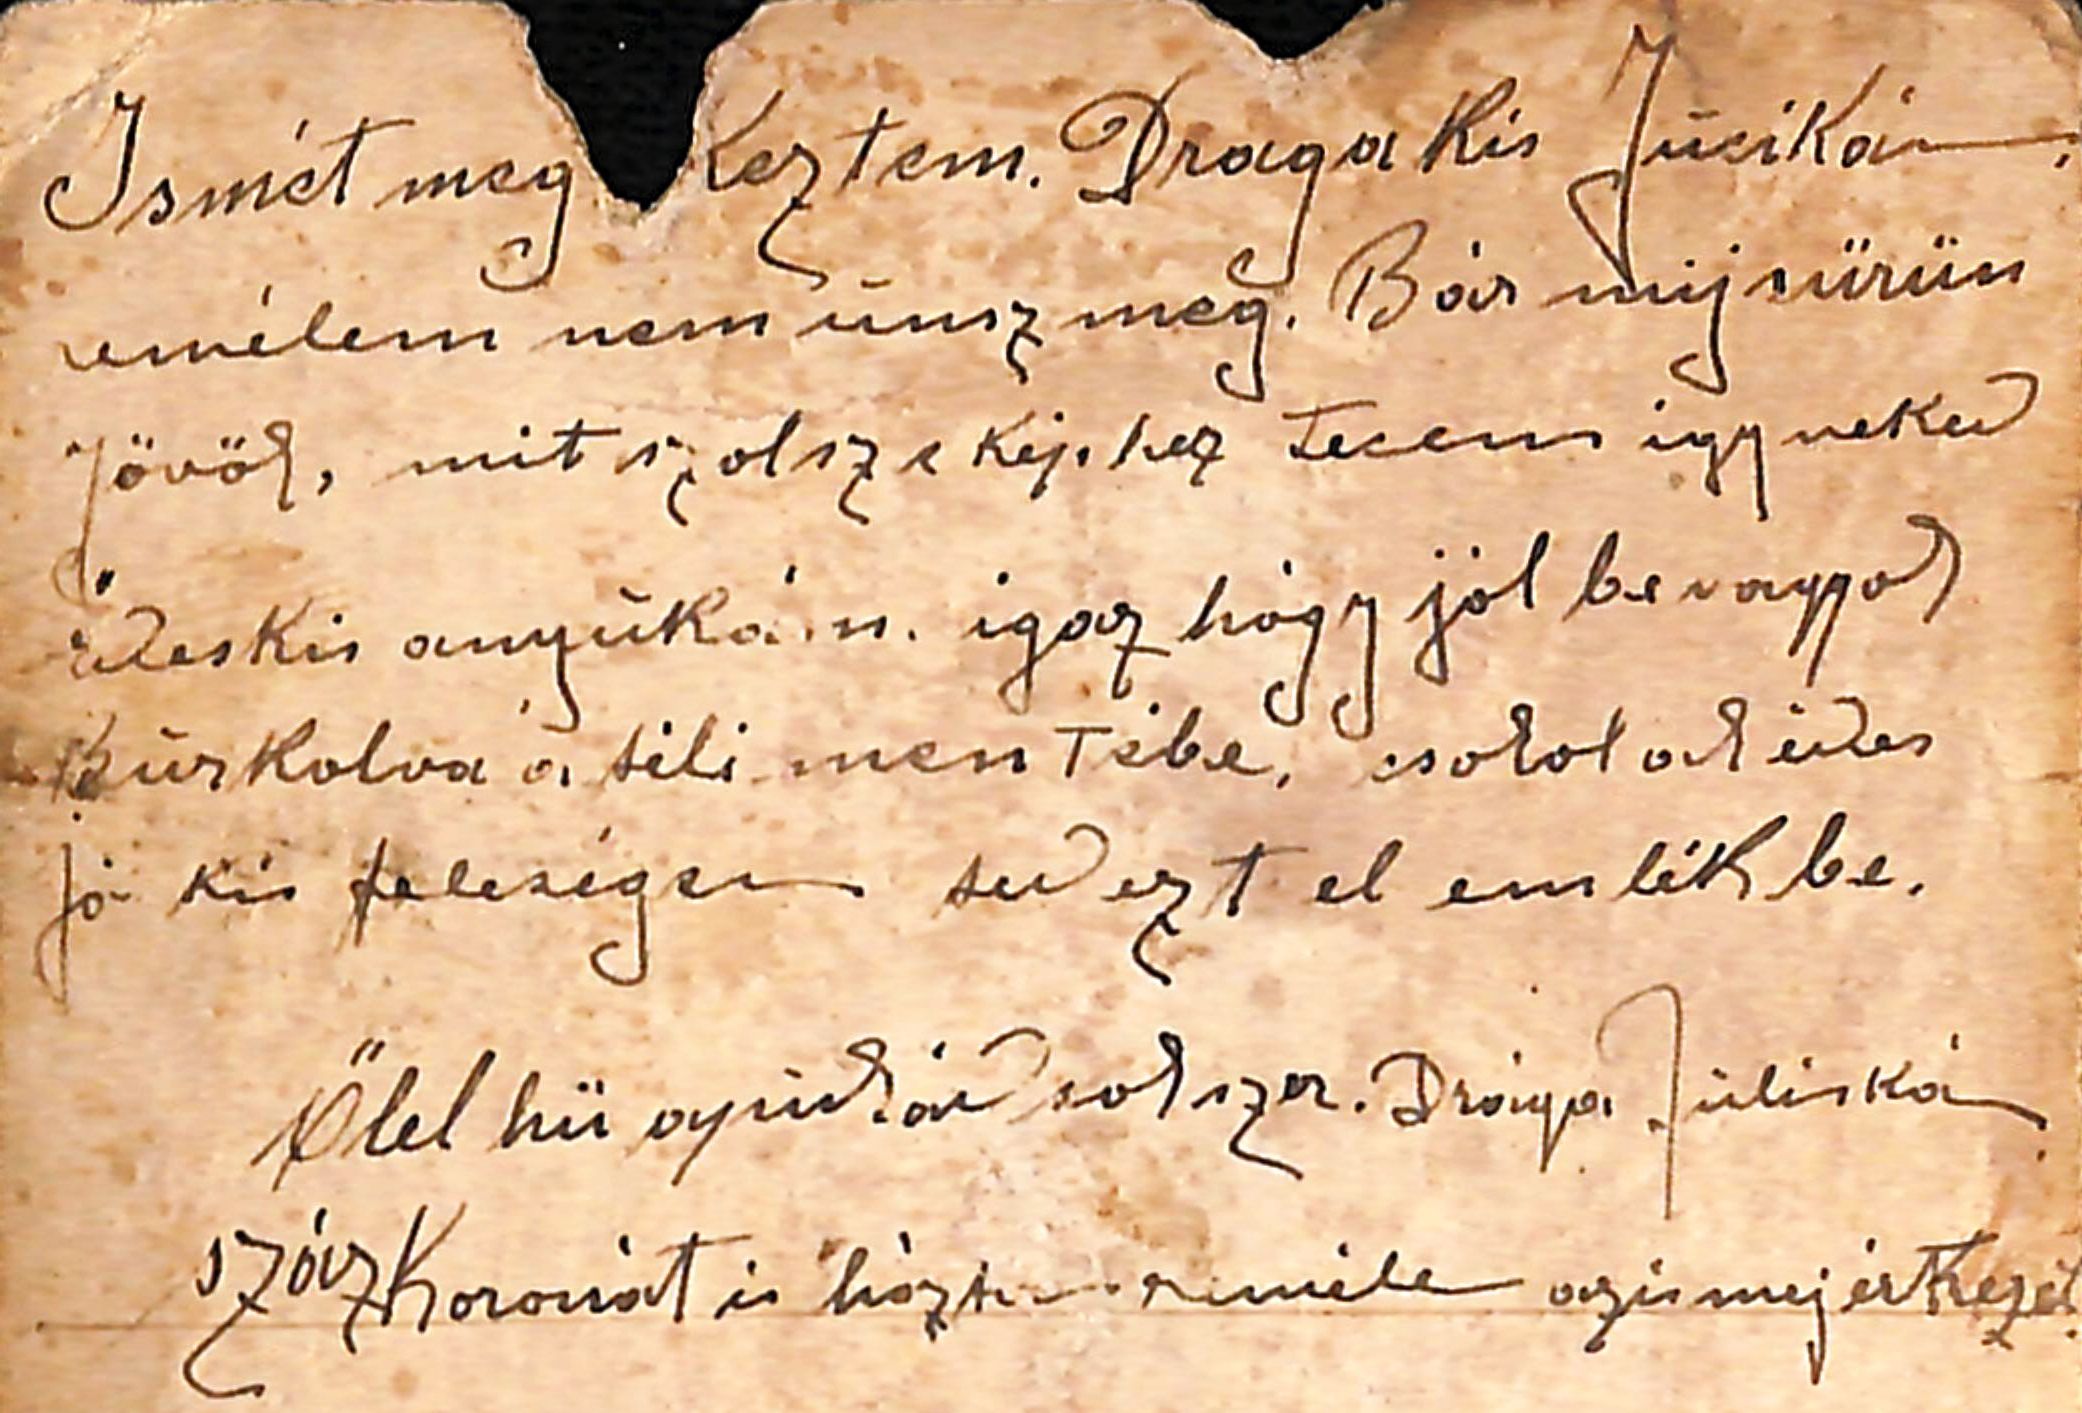 Ismét meg keztem. Draga Kis Jucikám.
remélem nem únsz meg. Bár mij sürün
jövök, mit szolsz e kép hez tecem igy neked
Édeskis anyúkám. igaz hógy jol be vagyok
Burkolva a téli mentébe, csokollak édes
jó kis feleségem ted ezt el emlékbe.
Ölel hü apukád sokszor. Drága Júliskám
száz Koronát is hozta remélem azis mejérkezet